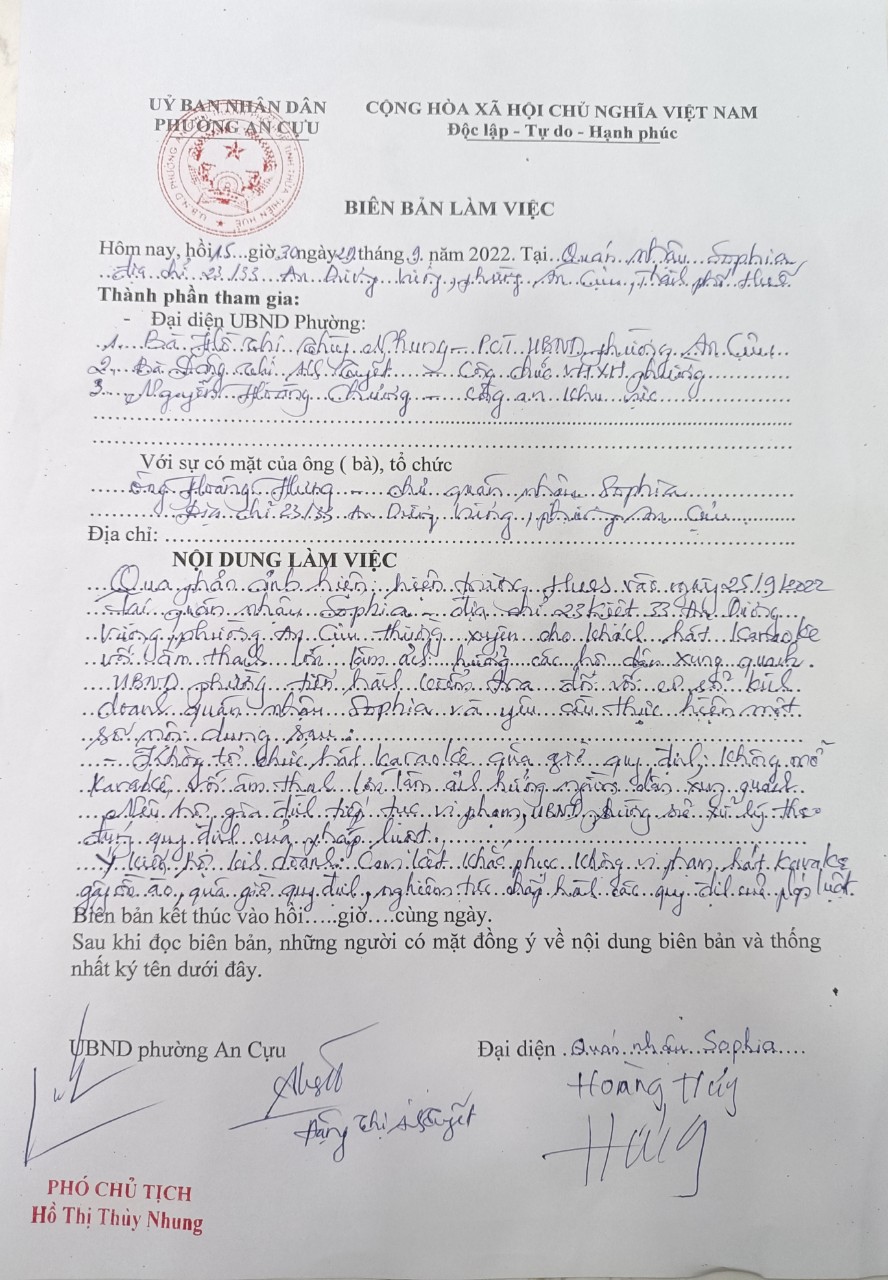 UỶ BAN NHÂN DÂN CỘNG HÒA XÃ HỘI CHỦ NGHĨA VIỆT NAM
PHƯỜNG AN CỰU Độc lập - Tự do - Hạnh phúc
BIÊN BẢN LÀM VIỆC
Hôm nay, hồi 15 giờ 30 ngày 29 tháng 9 năm 2022. Tại Quán nhậu Sophia,
địa chỉ 23/33 An Dương Vương, phường An Cựu, Thành phố Huế
Thành phần tham gia:
- Đại diện UBND Phường:
1. Bà Hồ Thị Thùy Nhung - PCT UBND phường An Cựu
2. Bà Đặng Thị Tuyết - Công chức VHXH phường
3. Nguyễn Hoàng Chương - công an khu vực
Với sự có mặt của ông ( bà), tổ chức
Ông Hoàng Hưng - chủ quán nhậu Sophia
Địa chỉ 23/33 An Dương Vương, phường An Cựu
Địa chỉ:
NỘI DUNG LÀM VIỆC
Qua phản ánh hiện trường Hues vào ngày 25/9/2022
tại quán nhậu Sophia - địa chỉ 23 kiệt 33 An Dương
Vương, phường An Cựu thường xuyên cho khách hát karaoke
với âm thanh lớn làm ảnh hưởng các hộ dân xung quanh.
UBND phường tiến hành kiểm tra đối với cơ sở kinh
doanh quán nhậu Sophia và yêu cầu thực hiện một
số nội dung sau:
- Không tổ chức hát karaoke quá giờ quy định; không mở
karaoke với âm thanh lớn làm ảnh hưởng người dân xung quanh
Nếu hộ gia đình tiếp tục vi phạm, UBND phường sẽ xử lý theo
đúng quy định của pháp luật.
Ý kiến hộ kinh doanh: Cam kết khắc phục không vi phạm, hát karaoke
gây ồn ào, quá giờ quy định, nghiêm túc chấp hành các quy định của pháp luật.
Biên bản kết thúc vào hồi…..giờ….cùng ngày.
Sau khi đọc biên bản, những người có mặt đồng ý về nội dung biên bản và thống
nhất ký tên dưới đây.
UBND phường An Cựu Đại diện Quán nhậu Sophia
Hoàng
Đặng Thị Tuyết
PHÓ CHỦ TỊCH
Hồ Thị Thùy Nhung